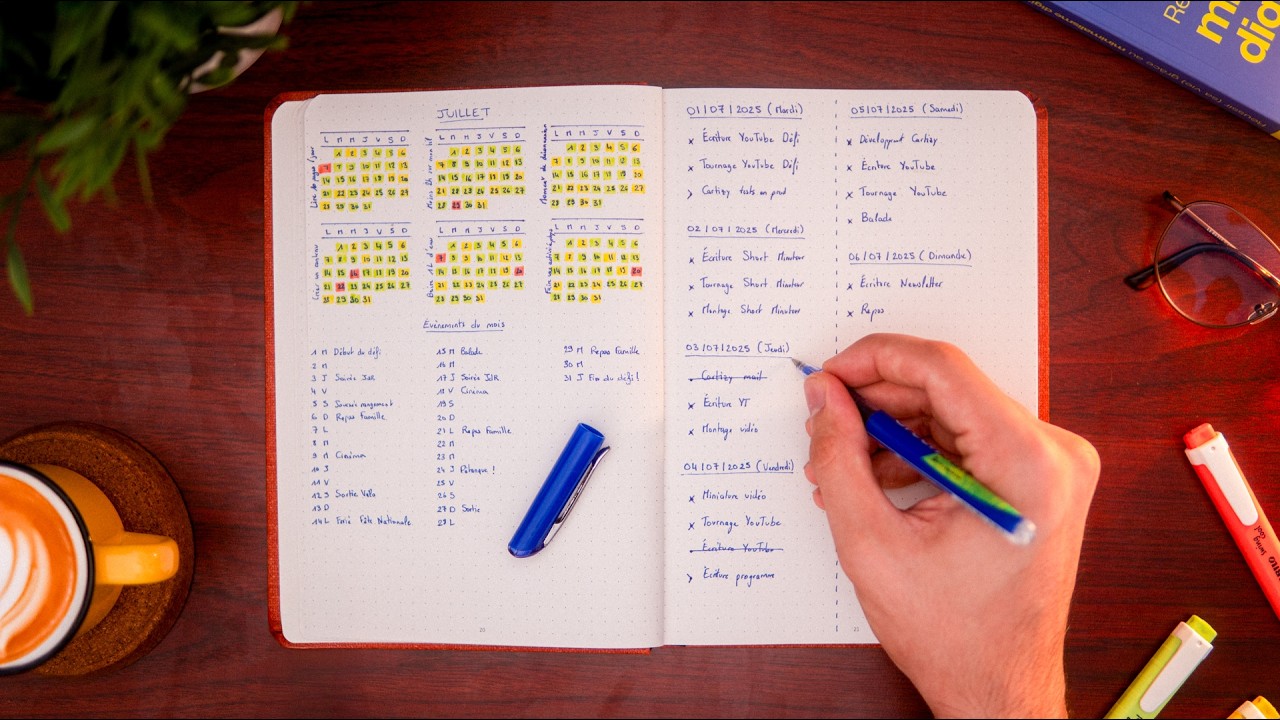 JUILLET
L M M J V S D
1 2 3 4 5 6
7 8 9 10 11 12 13
14 15 16 17 18 19 20
21 22 23 24 25 26 27
28 29 30 31
L M M J V S D
1 2 3 4 5 6
7 8 9 10 11 12 13
14 15 16 17 18 19 20
21 22 23 24 25 26 27
28 29 30 31
L M M J V S D
1 2 3 4 5 6
7 8 9 10 11 12 13
14 15 16 17 18 19 20
21 22 23 24 25 26 27
28 29 30 31
L M M J V S D
1 2 3 4 5 6
7 8 9 10 11 12 13
14 15 16 17 18 19 20
21 22 23 24 25 26 27
28 29 30 31
L M M J V S D
1 2 3 4 5 6
7 8 9 10 11 12 13
14 15 16 17 18 19 20
21 22 23 24 25 26 27
28 29 30 31
L M M J V S D
1 2 3 4 5 6
7 8 9 10 11 12 13
14 15 16 17 18 19 20
21 22 23 24 25 26 27
28 29 30 31
Évènements du mois
1 M Début du défi
2 M
3 J Soirée
4 V
5 S rangement
6 D Repas Famille
7 L
8 M
9 M Cinéma
10 J
11 V
12 S Sortie Vélo
13 D
14 L Férié Fête Nationale
15 M Balade
16 M
17 J Soirée
18 V Cinéma
19 S
20 D
21 L Repas Famille
22 M
23 M
24 J Pétanque !
25 V
26 S
27 D Sortie
28 L
29 M Repas Famille
30 M
31 J Fin du défi !
01/07/2025 (Mardi)
x Écriture YouTube Défi
x Tournage YouTube Défi
> Cartizy tests en prod
02/07/2025 (Mercredi)
x Écriture Short Minuteur
x Tournage Short Minuteur
x Montage Short Minuteur
03/07/2025 (Jeudi)
. Cartizy mail
x Écriture YT
x Montage vidéo
04/07/2025 (Vendredi)
x Miniature vidéo
x Tournage YouTube
. Écriture YouTube
> Écriture programme
05/07/2025 (Samedi)
x Cartizy
x Écriture YouTube
x Tournage YouTube
x Balade
06/07/2025 (Dimanche)
x Écriture Newsletter
x Repos
swing
cool